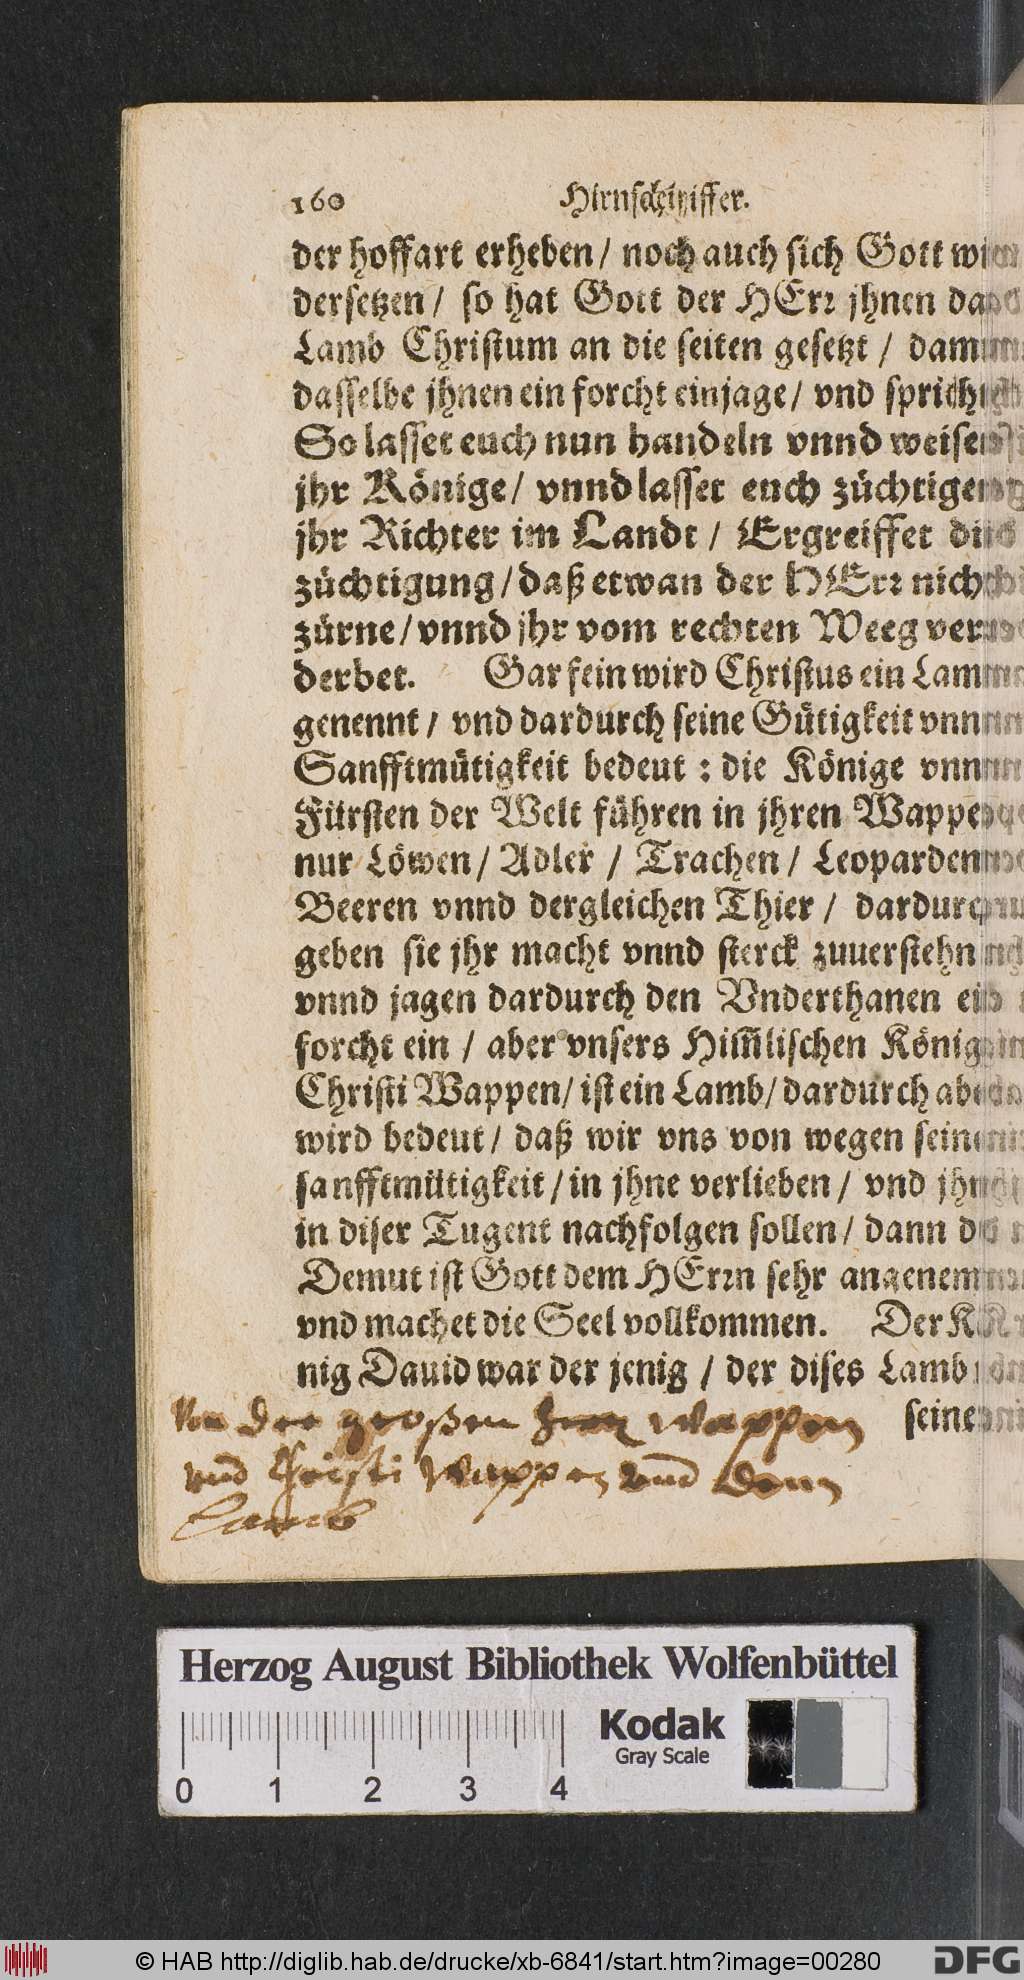 160 Hirnschleiffer.
der hoffart erheben / noch auch sich Gott wi
dersetzen / so hat Gott der HErr jhnen da
Lamb Christum an die seiten gesetzt / dam
dasselbe jhnen ein forcht einjage / vnd sprich
So lasset euch nun handeln vnnd weisen
jhr Könige / vnnd lasset euch züchtigen
jhr Richter im Landt / Ergreiffet die
züchtigung / daß etwan der HErr nicht
zürne / vnnd jhr vom rechten Weeg ver
derbet. Gar fein wird Christus ein Lamm
genennt / vnd dardurch seine Gütigkeit vnnd
Sanfftmütigkeit bedeut : die Könige vnnd
Fürsten der Welt führen in jhren Wappen
nur Löwen / Adler / Trachen / Leoparden
Beeren vnnd dergleichen Thier / dardurch
geben sie jhr macht vnnd sterck zuuerstehn
vnnd jagen dardurch den Vnderthanen ein
forcht ein / aber vnsers Him̃lischen König
Christi Wappen / ist ein Lamb / dardurch aber
wird bedeut / daß wir vns von wegen seiner
sanfftmütigkeit / in jhne verlieben / vnd jhm
in diser Tugent nachfolgen sollen / dann die
Demut ist Gott dem HErrn sehr angenem
vnd machet die Seel vollkommen. Der Kö
nig Dauid war der jenig / der dises Lamb
seine
Von der großen Wappen
vnd Christi Wappen vnd dem
Lamb
Herzog August Bibliothek Wolfenbüttel
Kodak
Gray Scale
0 1 2 3 4
© HAB http://diglib.hab.de/drucke/xb-6841/start.htm?image=00280
DFG